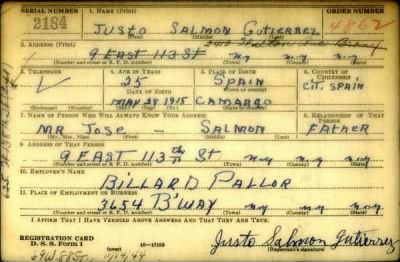 SERIAL NUMBER 1. NAME (Print) ORDER NUMBER
2184 JUSTO SALMON GUTIERREZ
2. ADDRESS (Print)
9 EAST 113 ST N.Y. N.Y. N.Y.
(Number and street or R. F. D. number) (Town) (County) (State)
3. TELEPHONE 4. AGE IN YEARS 5. PLACE OF BIRTH 6. COUNTRY OF CITIZENSHIP
25 SPAIN CIT. SPAIN
DATE OF BIRTH
MAY 28 1915 CAMARGO
(Exchange) (No.) (Mo.) (Day) (Yr.) (State or country)
7. NAME OF PERSON WHO WILL ALWAYS KNOW YOUR ADDRESS 8. RELATIONSHIP OF THAT PERSON
MR JOSE SALMON FATHER
(Mr., Mrs., Miss) (First) (Middle) (Last)
9. ADDRESS OF THAT PERSON
9 EAST 113 th ST N.Y. N.Y. N.Y.
(Number and street or R. F. D. number) (Town) (County) (State)
10. EMPLOYER'S NAME
BILLARD PALLOR
11. PLACE OF EMPLOYMENT OR BUSINESS
3654 B'WAY N.Y. N.Y. N.Y.
(Number and street or R. F. D. number) (Town) (County) (State)
I AFFIRM THAT I HAVE VERIFIED ABOVE ANSWERS AND THAT THEY ARE TRUE.
REGISTRATION CARD
D. S. S. Form 1 (over) 16-17105
Justo Salmon Gutierrez
(Registrant's signature)